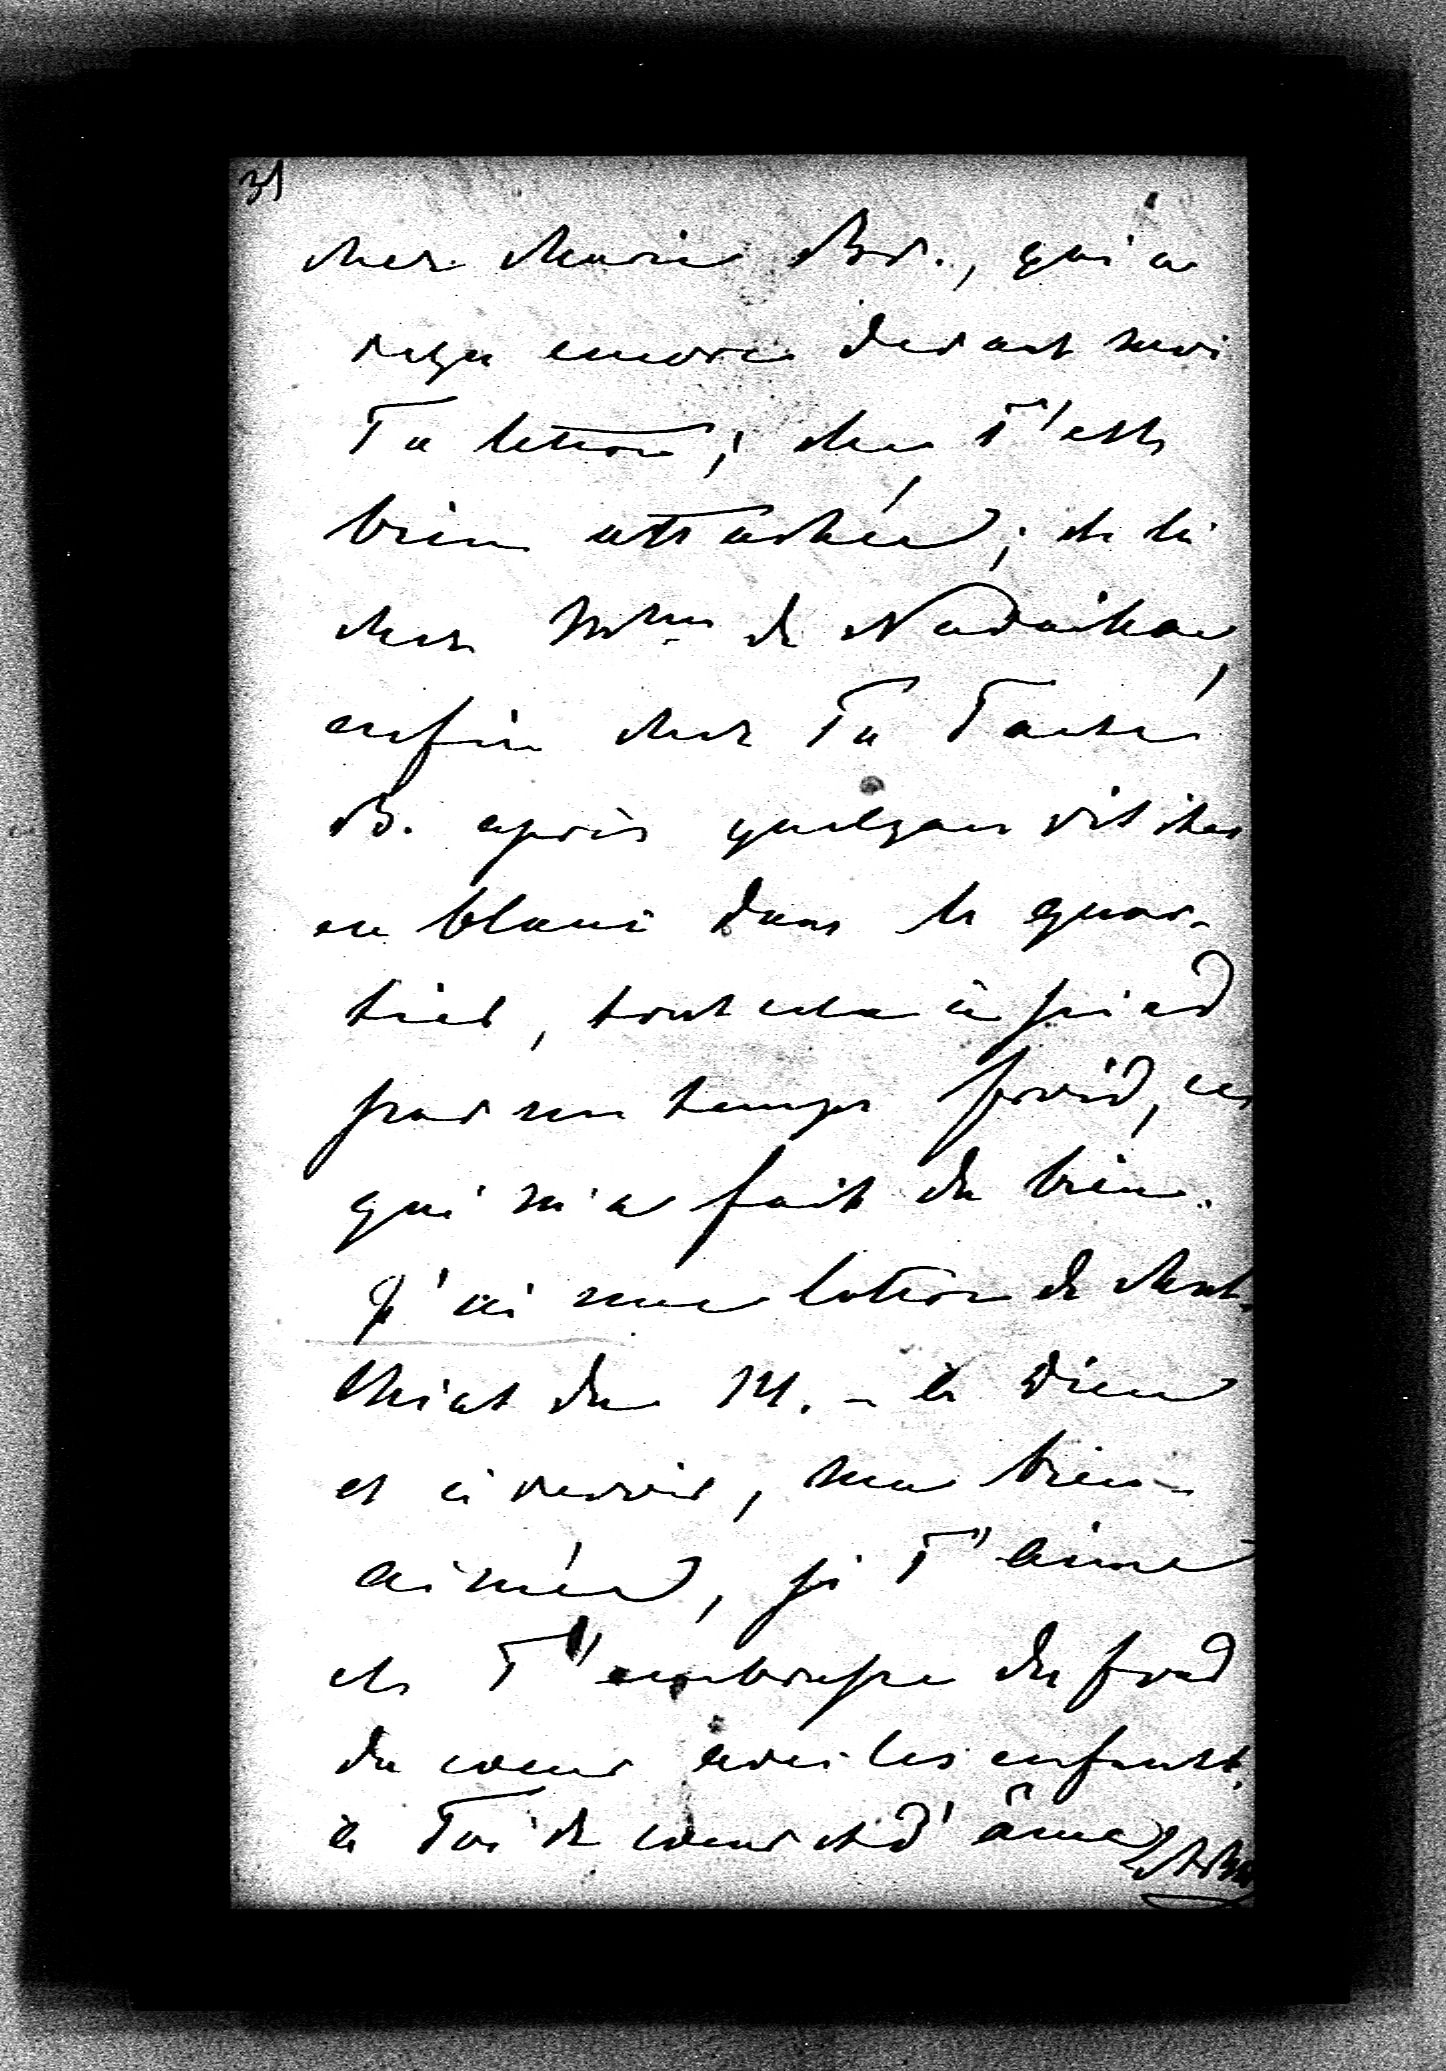 31
chez Marie Br., qui a
reçu encore devant moi
Ta lettre; elle T'est
bien attachée; et là
chez Mme de Nadaillac,
enfin chez Ta Tante
B. après quelques visites
en blanc dans le quar-
tier, tout cela à pied
par un temps froid, ce
qui m'a fait du bien.
J'ai une lettre de
du 14. – à Dieu
et à revoir, ma bien-
aimée, je T'aime
et T'embrasse du fond
du cœur avec les enfants.
à Toi de cœur et d'âme